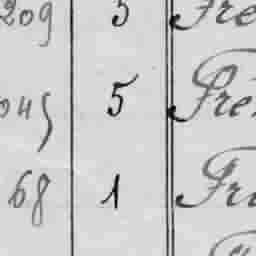 209 5 Fre
045 5 Fre
68 1 Fr